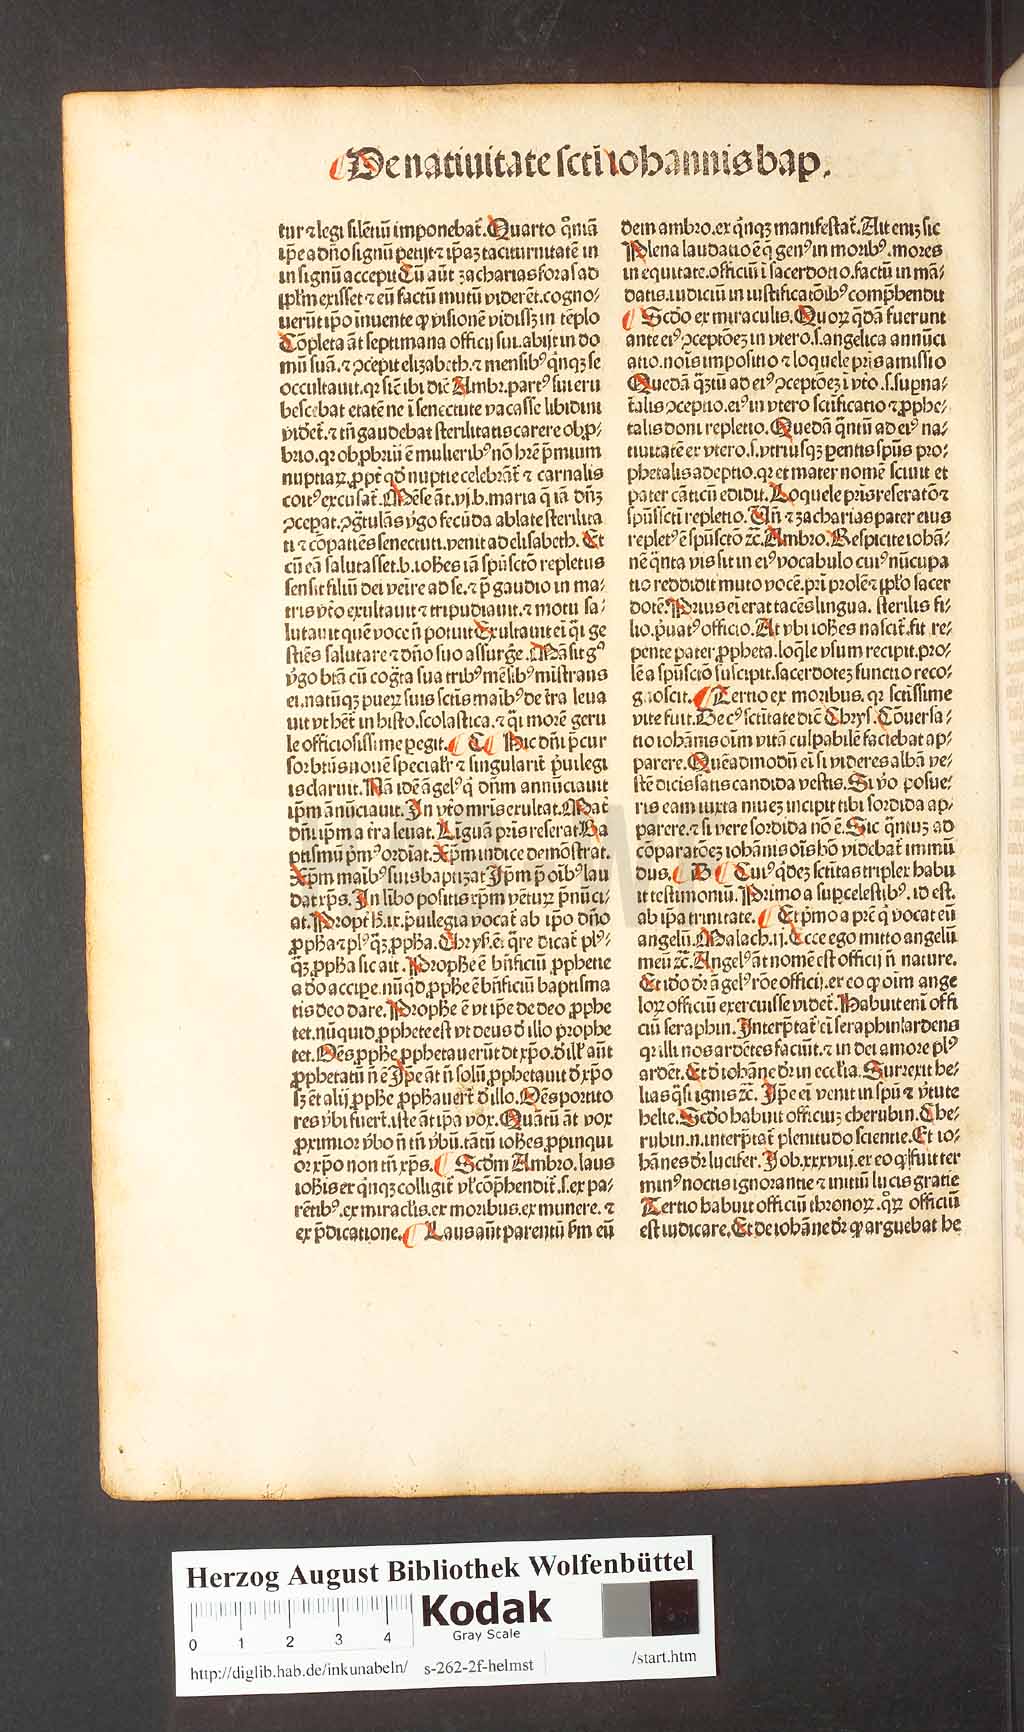 De natiuitate scti iohannis bap.
tur ⁊ legi silētiū imponebat᷑. Quarto qm̄iā
ip̄e a dn̄o signū petijt ⁊ ip̄az taciturnitatē in
in signū accepit Cū aūt zacharias foras ad
pp̄lm exisset ⁊ eū factū mutū viderēt. cogno⸗
uerūt ip̄o innuente ꝙ visionē vidissz in tēplo
Cōpleta āt septimana officij sui. abijt in do
mū suā. ⁊ ꝯcepit elizabeth. ⁊ mensibꝰ qͥnqz se
occultauit. qꝛ sic̄ ibi dic̄ Ambr. partꝰ sui eru
bescebat etatē ne ī senectute vacasse libidini
vider̄t. ⁊ tn̄ gaudebat sterilitatis carere obp̄⸗
brio. qꝛ obprobriū ē mulieribꝰ nō hr̄e p̄mium
nuptiaꝝ. ꝓpt̄ qd̄ nuptie celebrāt᷑ ⁊ carnalis
coitꝰ excusat᷑. Mēse āt. vj. b. maria q̄ iā dn̄z
ꝯcepat. ꝯgͣtulās v̓go fecūda ablate sterilita
ti ⁊ cōpatiēs senectuti. venit ad elisabeth. Et
cū eā salutasset. b. iohēs iā spūscto repletus
sensit filiū dei veire ad se. ⁊ p̄ gaudio in ma⸗
tris vt̄o exultauit ⁊ tripudiauit. ⁊ motu sa⸗
lutauit quē voce n̄ potuit Exultauit ei qͣi ge
stiēs salutare ⁊ dn̄o suo assurgē. Māsit gͦ
v̓go btā cū cogͣta sua tribꝰ mēsibꝰ mīstrans
ei. natūqz pueꝝ suis sctis maibꝰ de tr̄a leua
uit vt hēt in histo. scolastica. ⁊ qͣi morē geru
le officiosissime pegit. C Hic dn̄i p̄cur
sor btūs nouē speciali ⁊ singulariī p̄uilegi
is claruit. Nā idē āgelꝰ qͥ dn̄m annūciauit
ip̄m ānūciauit. In vt̄o mr̄is exultat. Mat̄
dn̄i ip̄m a tr̄a leuat. Liguā pris reserat. Ba
ptismū p̄mꝰ ordīat. Xp̄m indice demōstrat.
Xp̄m maibꝰ suis baptizat Ip̄m p̄ oibꝰ lau
dat xp̄s. In libo positis xp̄m vētuꝝ p̄nūci⸗
at. Propt̄ h̄. ix. p̄uilegia vocat᷑ ab ip̄o dn̄o
ꝓph̄a ⁊ plꝰ qͣz ꝓph̄a. Chrys. ē. qͣre dicat᷑ plꝰ⸗
qͣz ꝓph̄a sic ait. Prophē ē bn̄ficiū ꝓphetie
a deo accipe. nūqd̄ ꝓphē ē bn̄ficiū baptisma
tis deo dare. Prophē ē vt ip̄e de deo ꝓphe
tet. nūquid ꝓphete est vt deus d̄ illo prophe
tet. Oēs ꝓphē ꝓphetauerūt dt xp̄o. d̄ illo aūt
ꝓphetatū n̄ ē Ip̄e āt n̄ solū ꝓphetauit d̄ xp̄o
sz ēt alij ꝓphē ꝓphauer̄t d̄ illo. Oēs portito
res vbi fuert. iste āt ip̄a vox. Quātū āt vox
ꝓximior v̓bo n̄ tn̄ v̓bū. tātū iohēs ꝓpinqui
or xp̄o non tn̄ xp̄s. Scdm Ambro. laus
iohis ex qͥnqz colligit᷑ vl̓ cōp̄hendit᷑. s. ex pa⸗
rētibꝰ. ex miraclis. ex moribus. ex munere. ⁊
ex p̄dicatione. Laus aūt parentū s̓m eū
dem ambro. ex qͥnqz manifestat᷑. Ait enīz sic
Plena laudatio ē q̄ genꝰ in moribꝰ. mores
in equitate. officiū ī sacerdotio. factū in mā⸗
datis. iudiciū in iustificatōibꝰ comp̄hendit
Scdo ex miraculis. Quoꝝ qͣdā fuerunt
ante eiꝰ ꝯceptōez in vtero. s. angelica annūci
atio. nois impositio ⁊ loquele pris amissio
Quedā qͣztū ad eiꝰ ꝯceptōez ī vt̄o. s. sup̄na⸗
talis ꝯceptio. eiꝰ in vtero sctificatio ⁊ ꝓphe⸗
talis doni repletio. Quedā qͣntū ad eiꝰ na⸗
tiuitatē ex vtero. s. vtriusqz pentis spūs pro⸗
phetalis adeptio. qꝛ et mater nomē sciuit et
pater cāticū edidit. Loquele pris reseratō ⁊
spūs̄scti repletio. Un̄ ⁊ zacharias pater eius
repletꝰ ē spūscto ⁊c̄. Ambro. Respicite iohā⸗
nē qͣnta vis sit in eiꝰ vocabulo cuiꝰ nūcupa
tio reddidit muto vocē. pri prolē ⁊ pp̄lo sacer
dotē. Prius ei erat tacēs lingua. sterilis fi⸗
lio. p̄uatꝰ officio. At vbi iohēs nascit᷑. fit re⸗
pente pater ꝓpheta. loqͣle vsum recipit. pro⸗
lē a spūscto suscipit. sacerdotez functio reco⸗
gnoscit. Tertio ex moribus. qꝛ sctissime
vite fuit. De cꝰ sctitate dic̄ Chrys. Cōuersa⸗
tio iohānis oīm vitā culpabilē faciebat ap⸗
parere. Quēadmodū ei si videres albā ve⸗
stē dicis satis candida vestis. Si v̓o posue⸗
ris eam iuxta niuez incipit tibi sordida ap⸗
parere. ⁊ si vere sordida nō ē. Sic qͣntuz ad
cōparatōez iohānis ois hō videbat᷑ immū
dus. B Cuiꝰ qͥdez sctitas triplex habu
it testimoniū. Primo a sup̄celestibꝰ. id est.
ab ip̄a trinitate. Et p̄mo a prē qͥ vocat eū
angelū. Malach. ij. Ecce ego mitto angelū
meū ⁊c̄. Angelꝰ āt nomē est officij n̄ nature.
Et ido dr̄ āgelꝰ rōe officij. ex eo ꝙ oīm ange
loꝝ officiū exercuisse videt᷑. Habuit eni offi
ciū seraphin. Interp̄tat᷑ ei seraphin ardens
qꝛ illi nos ardētes faciūt. ⁊ in dei amore plꝰ
ardēt. Et d̄ iohāne dr̄ in eccl̓ia. Surrexit he⸗
lias qͣsi ignis ⁊c̄. Ip̄e ei venit in spū ⁊ v̓tute
helie. Scdo habuit officiuz cherubin. Che⸗
rubin. n. interp̄tat᷑ plenitudo scientie. Et io⸗
hānes dr̄ lucifer. Job. xxxviij. ex eo ꝙ fuit ter
minꝰ noctis ignorantie ⁊ initiū lucis gratie
Tertio habuit officiū thronoꝝ. qͦꝝ officiū
est iudicare. Et de iohāne dr̄ ꝙ arguebat he
Herzog August Bibliothek Wolfenbüttel
Kodak
Gray Scale
0 1 2 3 4
http://diglib.hab.de/inkunabeln/ s-262-2f-helmst /start.htm